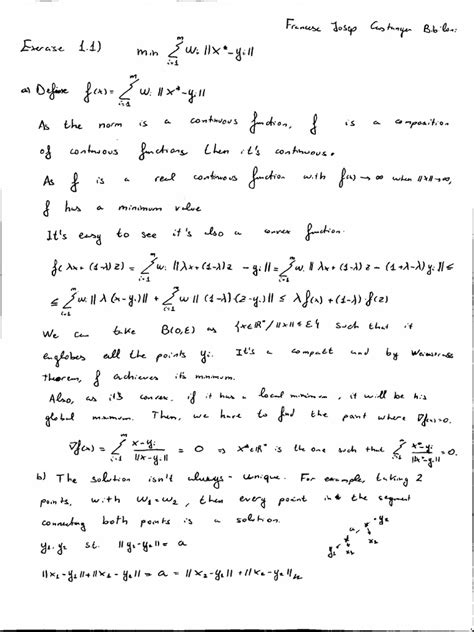 Francesc Josep Castanyer Bibiloni
Exercise 1.1) min Σ_{i=1}^{m} w_i ||x*-y_i||
a) Define f(x)= Σ_{i=1}^{m} w_i ||x*-y_i||
As the norm is a continuous function, f is a composition
of continuous functions, then it's continuous.
As f is a real continuous function with f(x)→∞ when ||x||→∞,
f has a minimum value
It's easy to see it's also a convex function.
f(λx+(1-λ)z) = Σ^{m} w_i ||λx+(1-λ)z - y_i|| = Σ^{m} w_i ||λx+(1-λ)z - (1+λ-λ)y_i|| ≤
≤ Σ^{m} w_i ||λ(x-y_i)|| + Σ^{m} w_i ||(1-λ)·(z-y_i)|| ≤ λf(x)+(1-λ)·f(z)
We can take B(0,E) as {x∈ℝ^n / ||x|| ≤ E} such that it
englobes all the points y_i. It's a compact and by Weierstrass
theorem, f achieves its minimum.
Also, as it's convex, if it has a local minimum, it will be his
global minimum. Then, we have to find the point where ∇f(x)=0.
∇f(x) = Σ_{i=1}^{m} (x-y_i)/||x-y_i|| = 0 ⇒ x*∈ℝ^n is the one such that Σ_{i=1}^{m} (x*-y_i)/||x*-y_i|| = 0.
b) The solution isn't always unique. For example, taking 2
points, with w_1=w_2, then every point in the segment
connecting both points is a solution.
y_1, y_2 st. ||y_1-y_2|| = a
y_1 x_1 a x_2 y_2
||x_1-y_1||+||x_1-y_2|| = a = ||x_2-y_1||+||x_2-y_2||